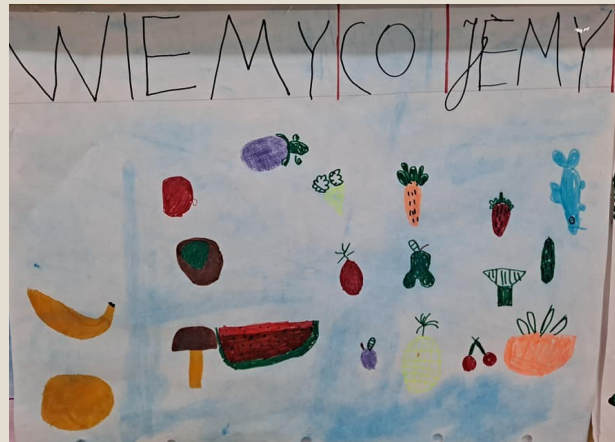 WIEMY CO JEMY